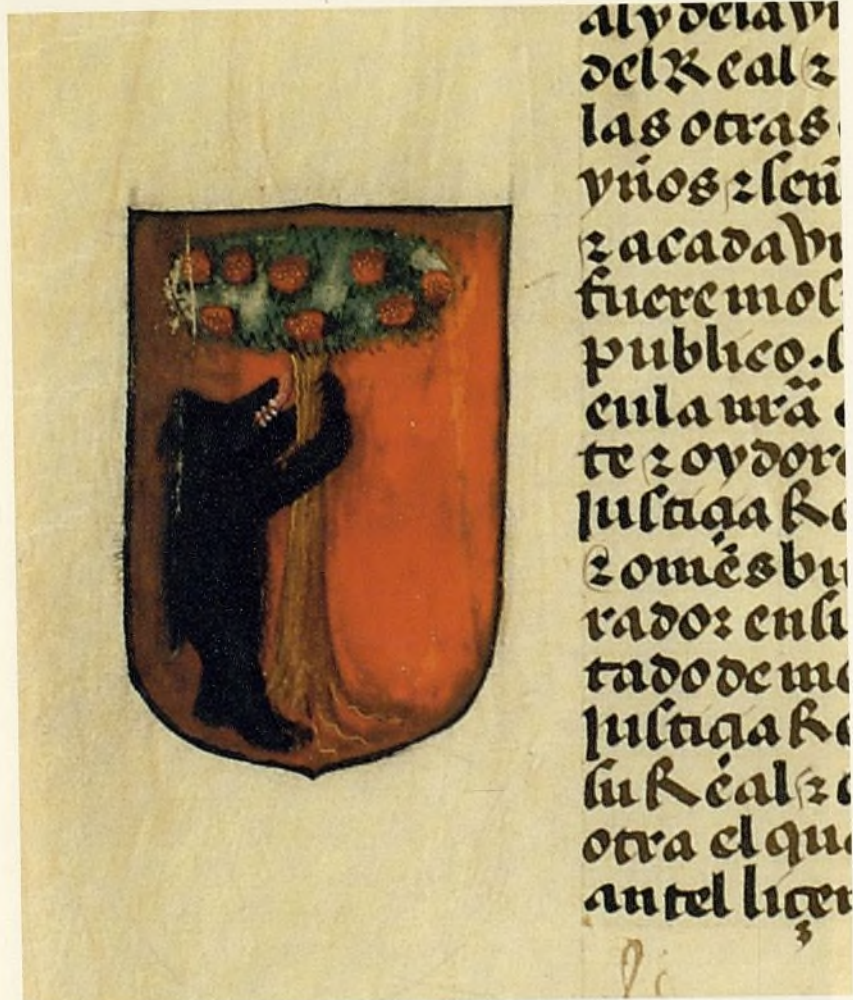 al y dela vi
del Real ⁊
las otras
vños ⁊ señ
⁊ acada vi
fuere mos
publico. 
enla nr̃a
te ⁊ oydor
Justiçia Re
⁊ omẽs bu
rador en su
tado de ma
Justiçia Re
su Real ⁊
otra el qu
antel liçen